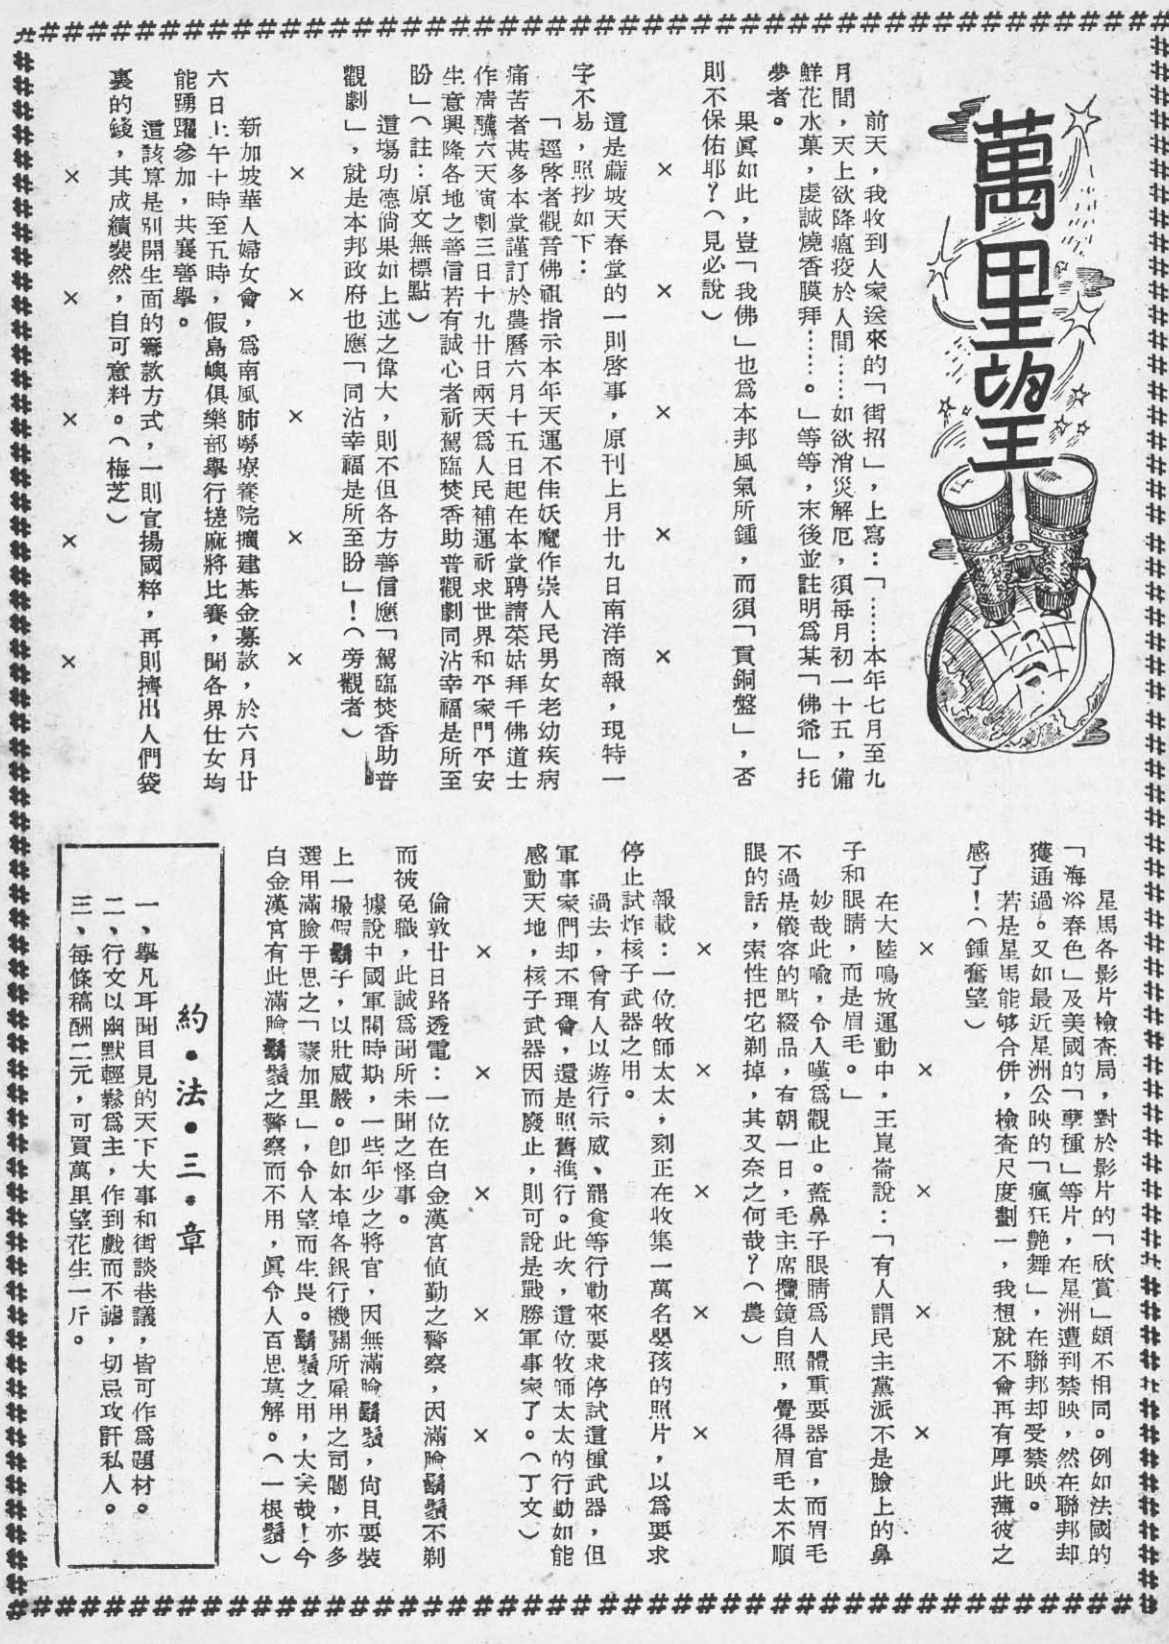 萬里望
前天，我收到人家送來的「街招」，上寫：「……本年七月至九
月間，天上欲降瘟疫於人間……如欲消災解厄，須每月初一十五，備
鮮花水菓，虔誠燒香膜拜……。」等等，末後並註明爲某「佛爺」托
夢者。
果眞如此，豈「我佛」也爲本邦風氣所鍾，而須「貢銅盤」，否
則不保佑耶？（見必說）
× × × × ×
這是蔴坡天春堂的一則啓事，原刊上月廿九日南洋商報，現特一
字不易，照抄如下：
「逕啓者觀音佛祖指示本年天運不佳妖魔作祟人民男女老幼疾病
痛苦者甚多本堂謹訂於農曆六月十五日起在本堂聘請菜姑拜千佛道士
作清醮六天演劇三日十九廿日兩天爲人民補運祈求世界和平家門平安
生意興隆各地之善信若有誠心者祈駕臨焚香助普觀劇同沾幸福是所至
盼」（註：原文無標點）
這場功德倘果如上述之偉大，則不但各方善信應「駕臨焚香助普
觀劇」，就是本邦政府也應「同沾幸福是所至盼」！（旁觀者）
× × × × ×
新加坡華人婦女會，爲南風肺癆療養院擴建基金募款，於六月廿
六日上午十時至五時，假島嶼俱樂部舉行搓麻將比賽，聞各界仕女均
能踴躍參加，共襄善舉。
這該算是別開生面的籌款方式，一則宣揚國粹，再則擠出人們袋
裏的錢，其成績裴然，自可意料。（梅芝）
× × × × ×
星馬各影片檢查局，對於影片的「欣賞」頗不相同。例如法國的
「海浴春色」及美國的「孽種」等片，在星洲遭到禁映，然在聯邦却
獲通過。又如最近星洲公映的「瘋狂艷舞」，在聯邦却受禁映。
若是星馬能够合併，檢查尺度劃一，我想就不會再有厚此薄彼之
感了！（鍾奮望）
× × × × ×
在大陸鳴放運動中，王崑崙說：「有人謂民主黨派不是臉上的鼻
子和眼睛，而是眉毛。」
妙哉此喩，令人嘆爲觀止。蓋鼻子眼睛爲人體重要器官，而眉毛
不過是儀容的點綴品，有朝一日，毛主席攬鏡自照，覺得眉毛太不順
眼的話，索性把它剃掉，其又奈之何哉？（農）
× × × × ×
報載：一位牧師太太，刻正在收集一萬名嬰孩的照片，以爲要求
停止試炸核子武器之用。
過去，曾有人以遊行示威、罷食等行動來要求停試這種武器，但
軍事家們却不理會，還是照舊進行。此次，這位牧師太太的行動如能
感動天地，核子武器因而廢止，則可說是戰勝軍事家了。（丁文）
× × × × ×
倫敦廿日路透電：一位在白金漢宮偵勤之警察，因滿臉鬍鬚不剃
而被免職，此誠爲聞所未聞之怪事。
據說中國軍閥時期，一些年少之將官，因無滿臉鬍鬚，尙且要裝
上一撮假鬍子，以壯威嚴。卽如本埠各銀行機關所雇用之司閽，亦多
選用滿臉于思之「蒙加里」，令人望而生畏。鬍鬚之用，大矣哉！今
白金漢宮有此滿臉鬍鬚之警察而不用，眞令人百思莫解。（一根鬚）
約•法•三•章
一、舉凡耳聞目見的天下大事和街談巷議，皆可作爲題材。
二、行文以幽默輕鬆爲主，作到戲而不謔，切忌攻訐私人。
三、每條稿酬二元，可買萬里望花生一斤。